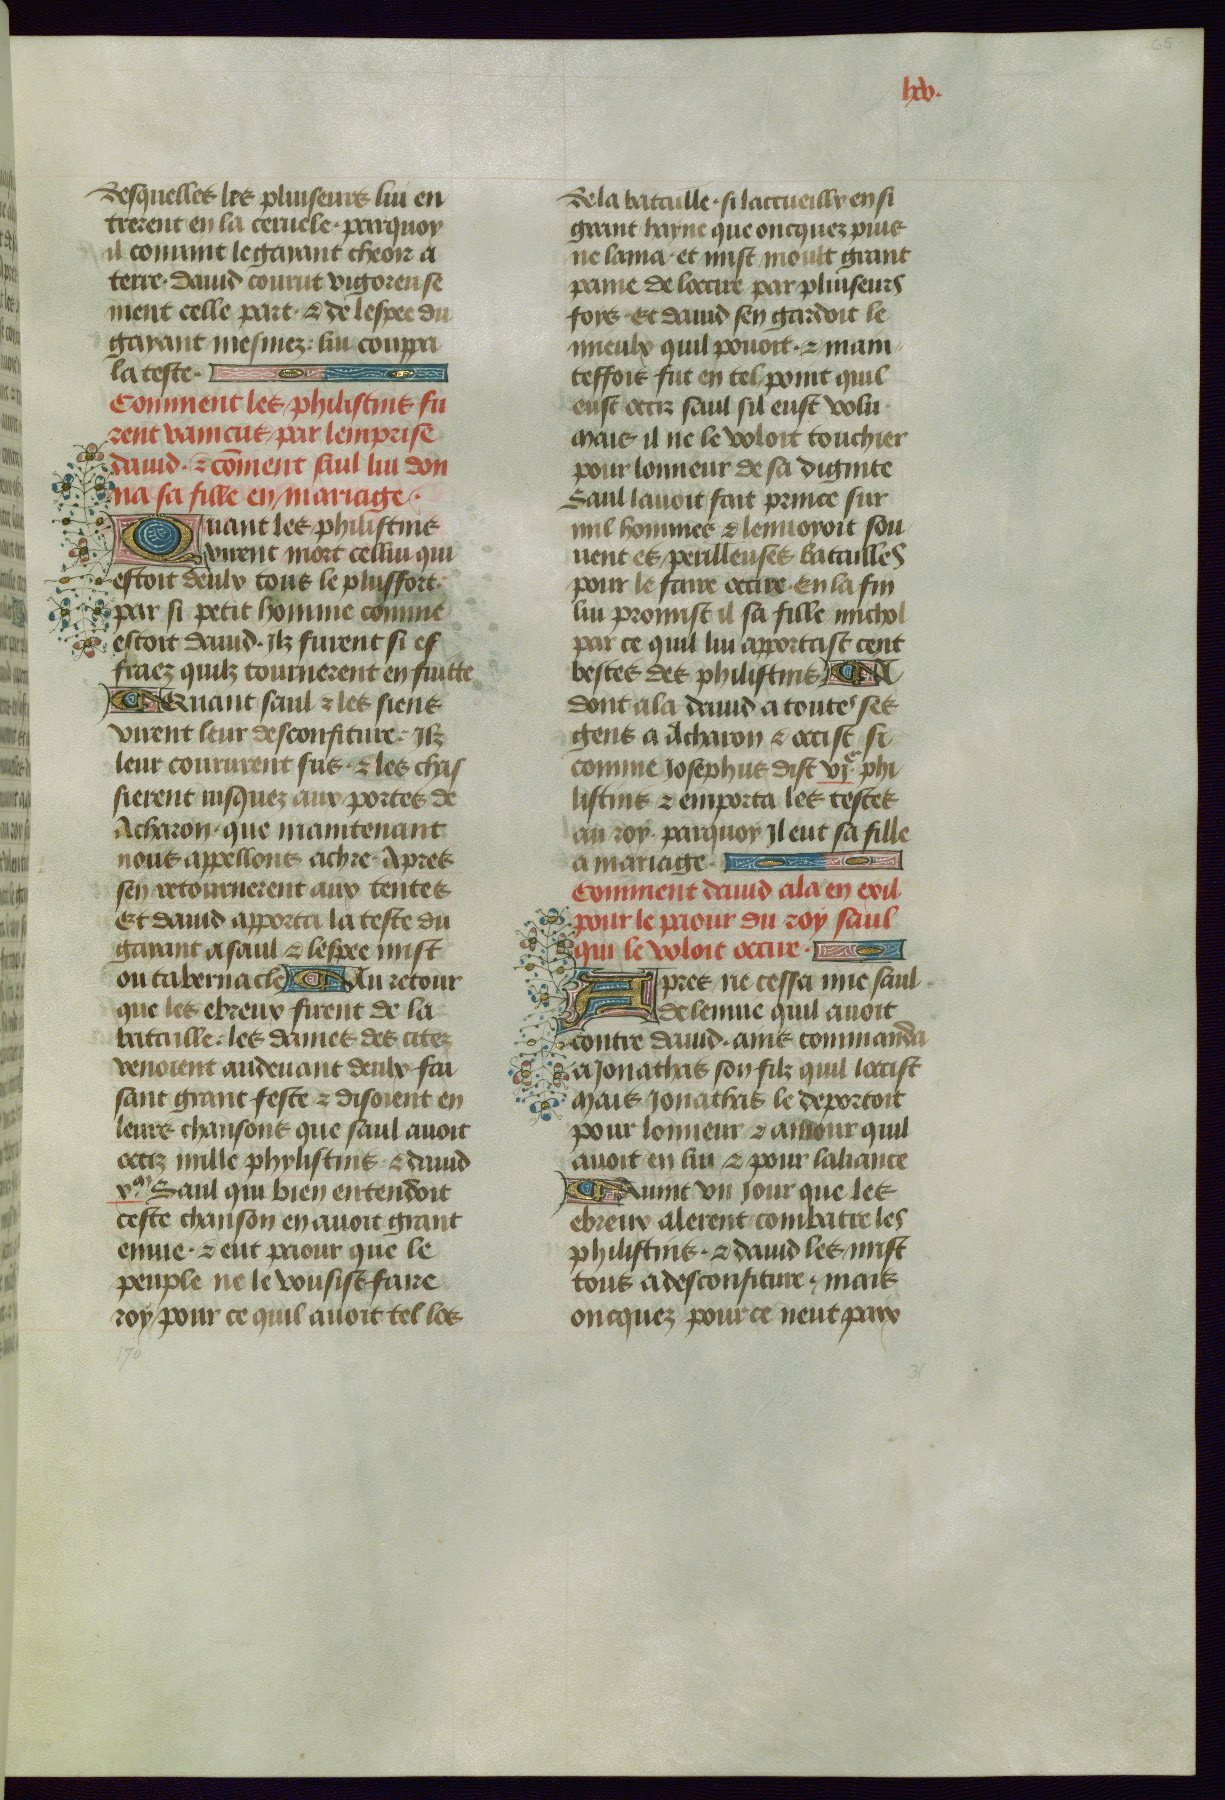 65
lxv.
desquelles les pluiseurs lui en
trerent en la ceruele · parquoy
il conuint le gayant cheoir a
terre · dauid courut vigoreuse
ment celle part · & de lespee du
gayant mesmez · lui couppa
la teste ·
Comment les philistins fu
rent vaincus par lemprise
dauid · & cōment saul lui don
na sa fille en mariage ·
Quant les philistins
virent mort cellui qui
estoit deulx tous le plusfort
par si petit homme comme
estoit dauid · Ilz furent si ef
fraez quilz tournerent en fuitte
Quant saul & les siens
virent leur desconfiture · Ilz
leur coururent sus · & les chas
sierent iusquez aux portes de
Acharon · que maintenant
nous appellons achre · Apres
sen retournerent aux tentes
Et dauid apporta la teste du
gayant a saul & lespee mist
ou tabernacle Au retour
que les ebreux firent de la
bataille · les dames des citez
venoient audeuant deulx fai
sant grant feste & disoient en
leurs chansons que saul auoit
occiz mille phylistins · & dauid
xm Saul qui bien entendoit
ceste chanson en auoit grant
enuie · & eut paour que le
peuple ne le vousist faire
roy pour ce quil auoit tel los
de la bataille · si laccueilly en si
grant hayne que oncquez puis
ne lama · et mist moult grant
paine de loccire par pluiseurs
fois · Et dauid sen gardoit le
mieulx quil pouoit · & main
teffois fut en tel point quil
eust occiz saul sil eust volu ·
Mais il ne le voloit touchier
pour lonneur de sa dignite
Saul lauoit fait prince sur
mil hommes & lenuoyoit sou
uent es perilleuses batailles
pour le faire occire · En la fin
lui promist il sa fille michol
par ce quil lui apportast cent
testes des philistins A
dont ala dauid a toutes ses
gens a Acharon & occist si
comme Josephus dist vic phi
listins & emporta les testes
au roy · parquoy Il eut sa fille
a mariage ·
Comment dauid ala en exil
pour le paour du roy saul
qui le voloit occire ·
Apres ne cessa mie saul
de lenuie quil auoit
contre dauid · ains commanda
a Jonathas son filz quil loccist
Mais Jonathas le deportoit
pour lonneur & amour quil
auoit en lui & pour laliance
Auint vn Jour que les
ebreux alerent combatre les
philistins · & dauid les mist
tous a desconfiture · mais
oncquez pour ce neut paix
170